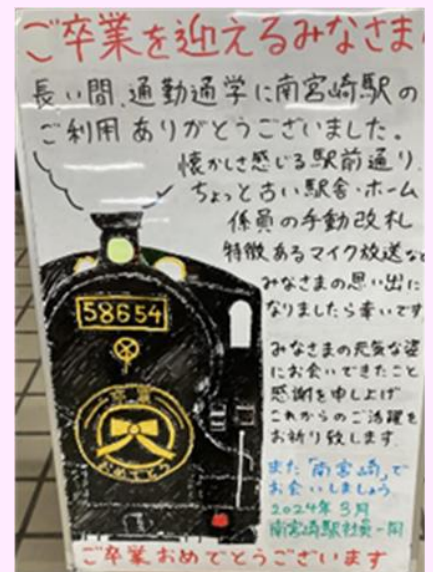 ご卒業を迎えるみなさま
長い間、通勤通学に南宮崎駅の
ご利用ありがとうございました。
懐かしさ感じる駅前通り、
ちょっと古い駅舎・ホーム
係員の手動改札
特徴あるマイク放送など
みなさまの思い出に
なりましたら幸いです
みなさまの元気な姿
にお会いできたこと
感謝を申し上げ
これからのご活躍を
お祈り致します
また「南宮崎」で
お会いしましょう
2024年3月
南宮崎駅社員一同
58654
卒業
おめでとう
ご卒業おめでとうございます